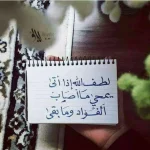 لطف الله إذا أتى
يمحي ما أصاب
الفؤاد وما بقى